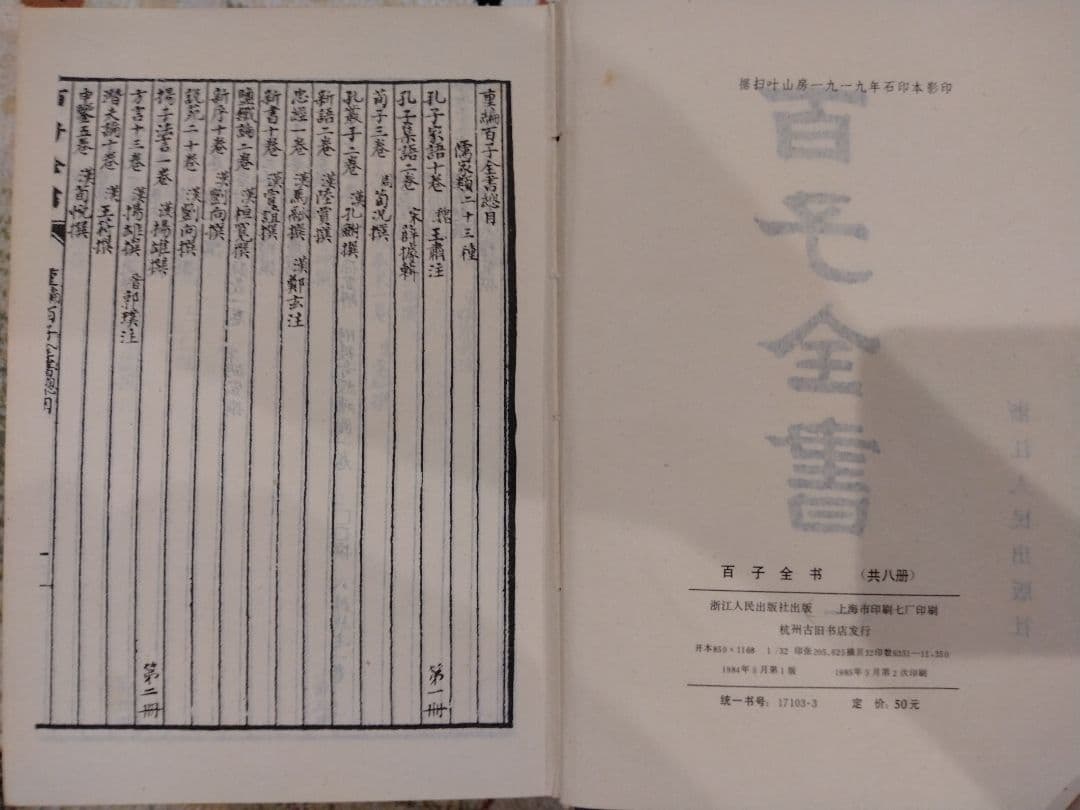 重編百子全書總目
儒家類二十三種
孔子家語十卷 魏王肅注 第一冊
孔子集語二卷 宋薛據輯
荀子三卷 周荀況撰
孔叢子二卷 漢孔鮒撰
新語二卷 漢陸賈撰
忠經一卷 漢馬融撰 漢鄭玄注
新書十卷 漢賈誼撰
鹽鐵論二卷 漢桓寬撰
新序十卷 漢劉向撰
說苑二十卷 漢劉向撰
揚子法言一卷 漢揚雄撰
方言十三卷 漢揚雄撰 晉郭璞注 第二冊
潛夫論十卷 漢王符撰
申鑒五卷 漢荀悅撰
百子全書
重編百子全書總目
一
据扫叶山房一九一九年石印本影印
百子全書
浙江人民出版社
百子全书 (共八册)
浙江人民出版社出版 上海市印刷七厂印刷
杭州古旧书店发行
开本850×1168 1/32 印张205.625插页32印数6251—11,350
1984年8月第1版 1985年3月第2次印刷
统一书号：17103·3 定 价：50元